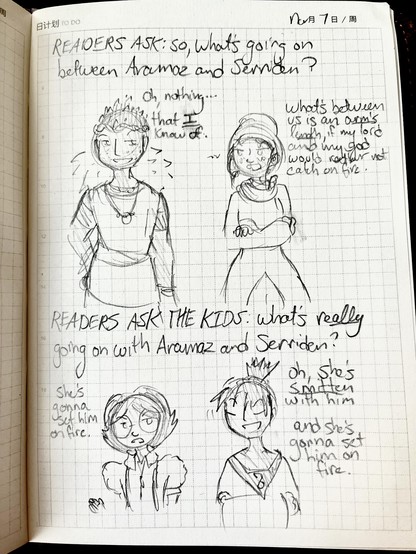 日计划 to do
Nov月 7日 / 周
READERS ASK: so, what's going on
between Aramaz and Serriden?
oh, nothing...
that I
know of.
what's between
us is an arm's
length, if my lord
and my god
would rather not
catch on fire.
READERS ASK THE KIDS: what's really
going on with Aramaz and Serriden?
she's
gonna
set him
on fire.
oh, she's
smitten
with him
and she's
gonna set
him on
fire.